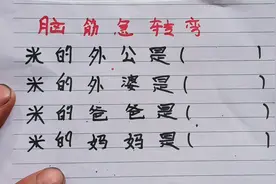 脑筋急转弯
米的外公是(      )
米的外婆是(      )
米的爸爸是(      )
米的妈妈是(      )